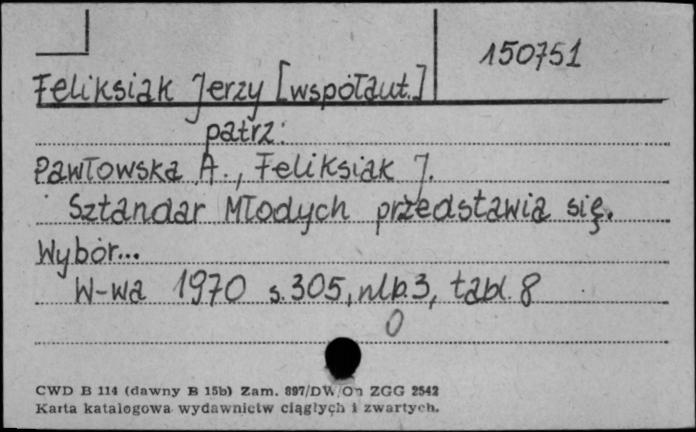 150751
Feliksiak Jerzy [współaut.]
patrz:
Pawłowska A., Feliksiak J.
Sztandar Młodych przedstawia się.
Wybór...
W-wa 1970 s.305, nlb.3, tabl. 8
0
CWD B 114 (dawny B 15b) Zam. 897/DW/On ZGG 2542
Karta katalogowa wydawnictw ciągłych i zwartych.